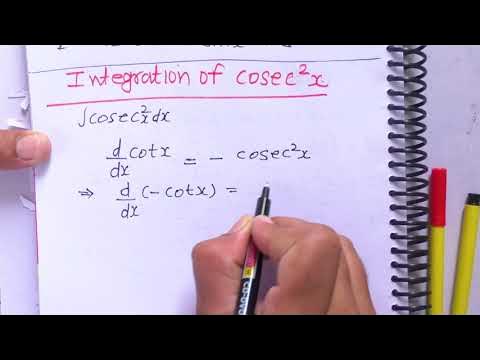 Integration of cosec²x
∫cosec²x dx
d/dx cotx = - cosec²x
⇒ d/dx (-cotx) =